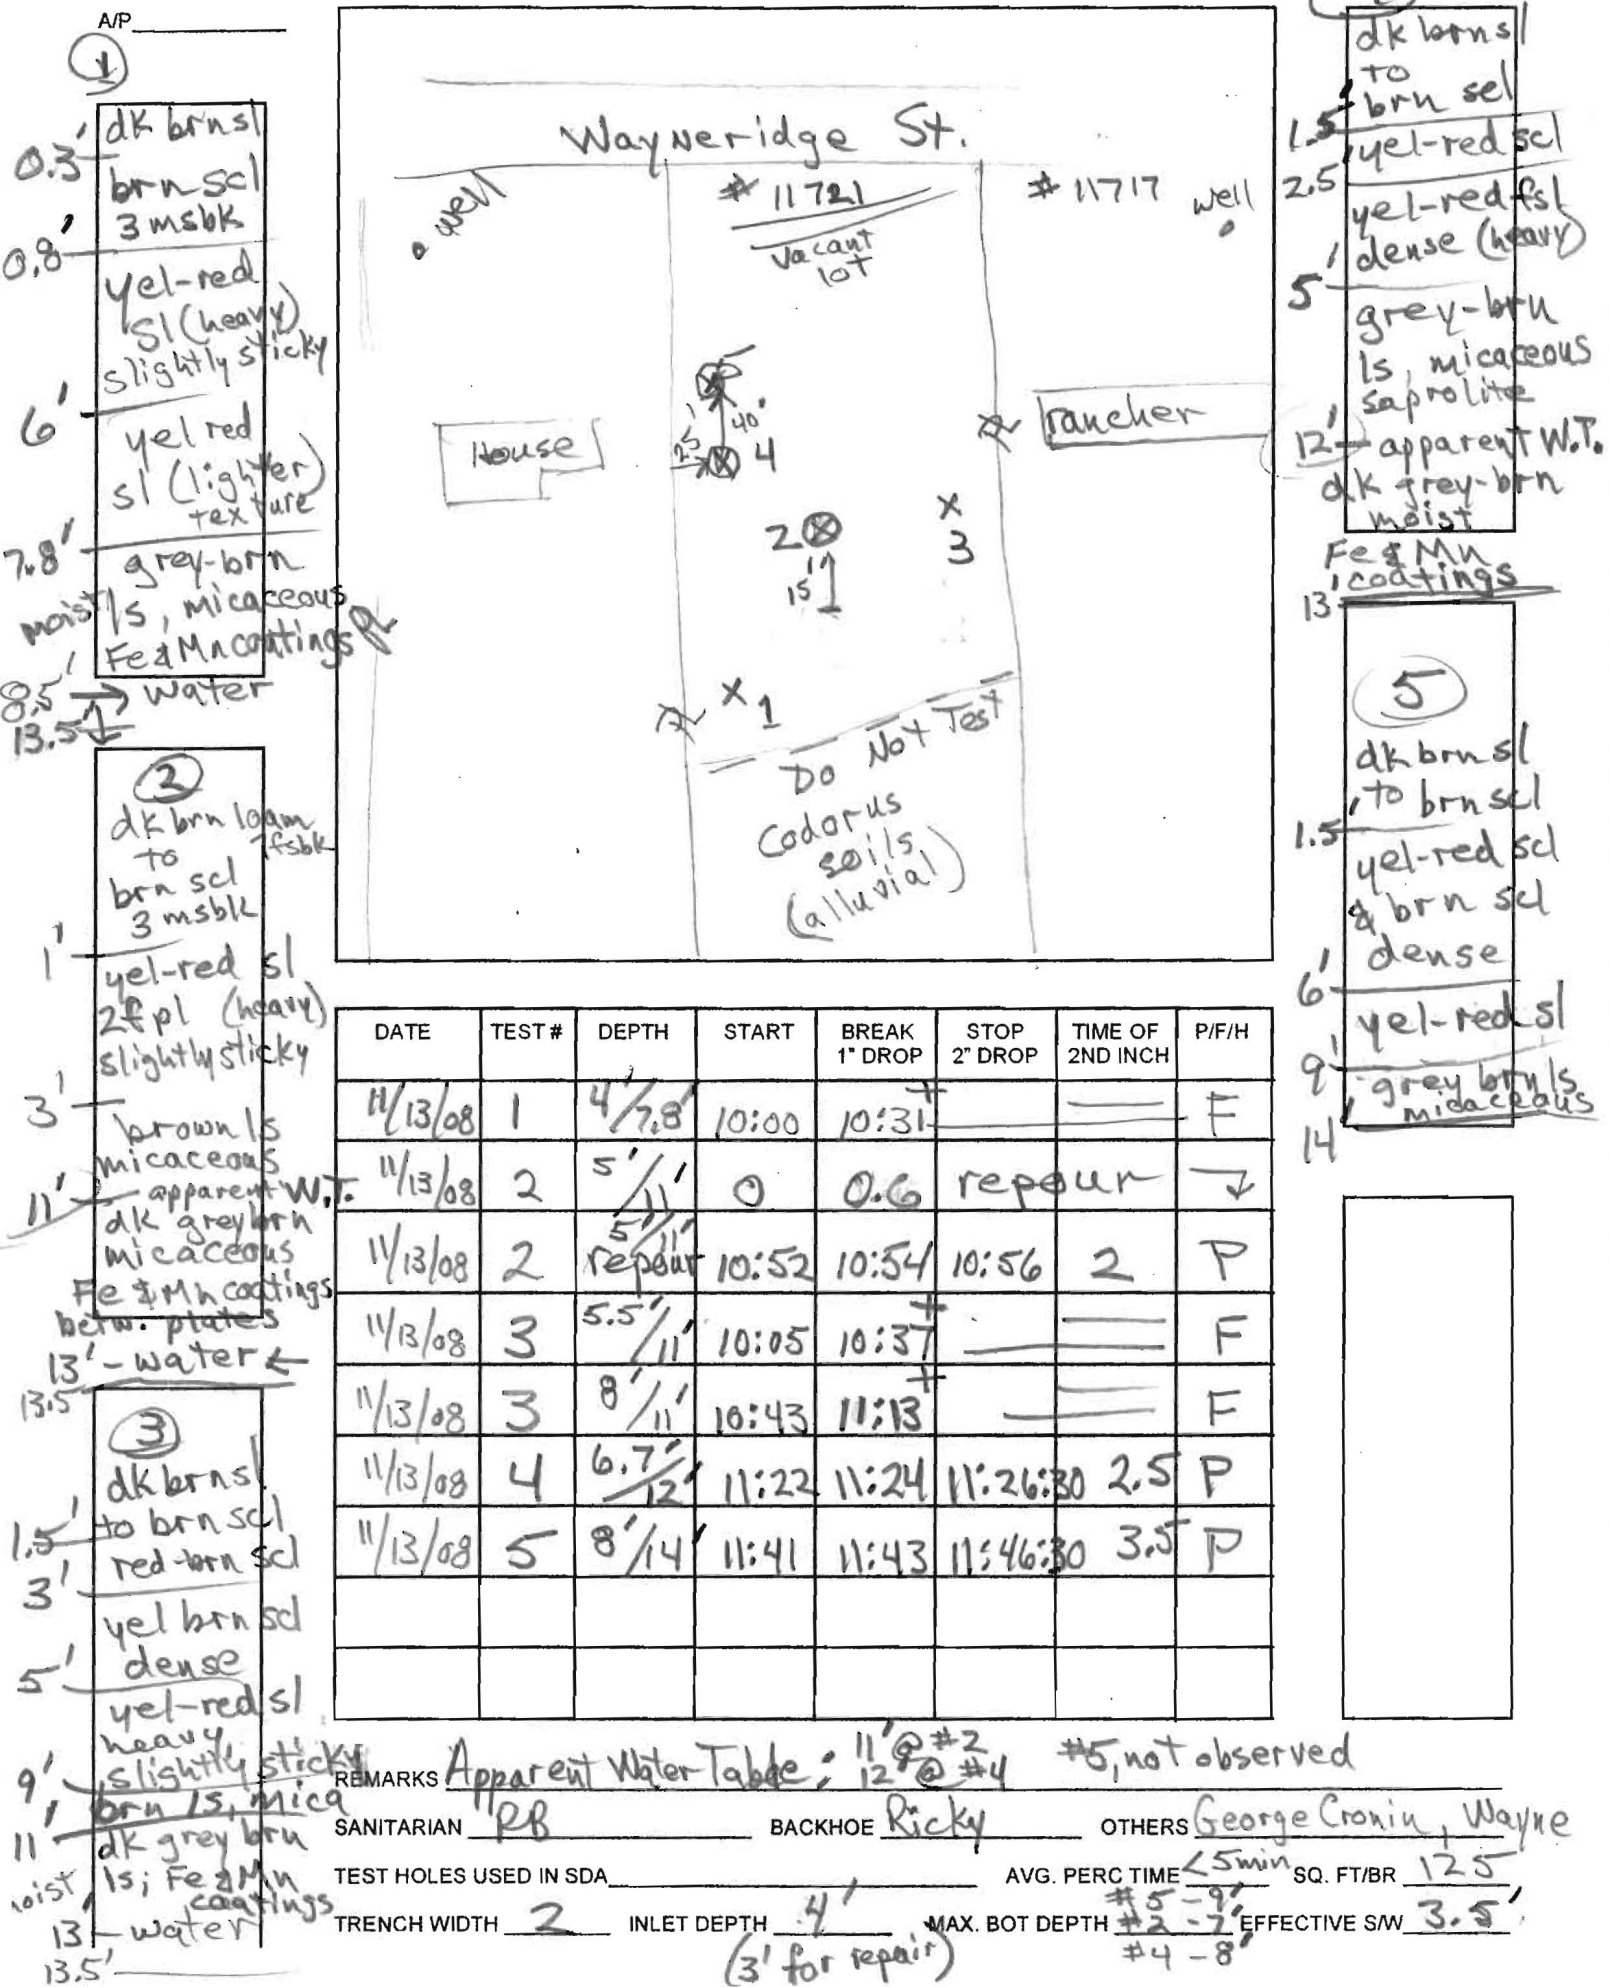 A/P
1
dk brn sl
0.3'
brn scl
3 msbk
0.8'
yel-red
sl (heavy)
slightly sticky
6'
yel red
sl (lighter)
texture
7.8'
grey-brn
moist ls, micaceous
Fe & Mn coatings
8.5' → water
13.5'
2
dk brn loam
to 1fsbk
brn scl
3 msbk
1'
yel-red sl
2fpl (heavy)
slightly sticky
3'
brown ls
micaceous
11' apparent W.T.
dk grey brn
micaceous
Fe & Mn coatings
betw. plates
13' - water ←
13.5
3
dk brn sl
to brn scl
1.5'
red-brn scl
3'
yel brn scl
dense
5'
yel-red sl
heavy,
slightly sticky
9'
brn ls, mica
11'
dk grey brn
ls; Fe & Mn
coatings
13 - water
13.5'
Wayneridge St.
well
# 11721
vacant
lot
# 11717
well
House
rancher
5
40'
25'
4
2
15'
3
1
Do Not Test
Codorus
soils
(alluvial)
dk brn sl
to
brn scl
1.5'
yel-red scl
2.5'
yel-red fsl
dense (heavy)
5'
grey-brn
ls, micaceous
saprolite
12' apparent W.T.
dk grey-brn
moist
Fe & Mn
coatings
13'
5
dk brn sl
to brn scl
1.5'
yel-red scl
& brn scl
dense
6'
yel-red sl
9'
grey brn ls
micaceous
14'
DATE TEST # DEPTH START BREAK 1" DROP STOP 2" DROP TIME OF 2ND INCH P/F/H
11/13/08 1 4'/7.8' 10:00 10:31+ F
11/13/08 2 5'/11' 0 0.6 repour ↓
11/13/08 2 5'/11' repour 10:52 10:54 10:56 2 P
11/13/08 3 5.5'/11' 10:05 10:37+ F
11/13/08 3 8'/11' 10:43 11:13+ F
11/13/08 4 6.7'/12' 11:22 11:24 11:26:30 2.5 P
11/13/08 5 8'/14' 11:41 11:43 11:46:30 3.5 P
REMARKS Apparent Water Table: 11' @ #2 #5, not observed
12' @ #4
SANITARIAN RB BACKHOE Ricky OTHERS George Cronin, Wayne
TEST HOLES USED IN SDA AVG. PERC TIME <5min SQ. FT/BR 125
TRENCH WIDTH 2 INLET DEPTH 4' MAX. BOT DEPTH #5 - 9' EFFECTIVE S/W 3.5'
#2 - 7'
(3' for repair) #4 - 8'